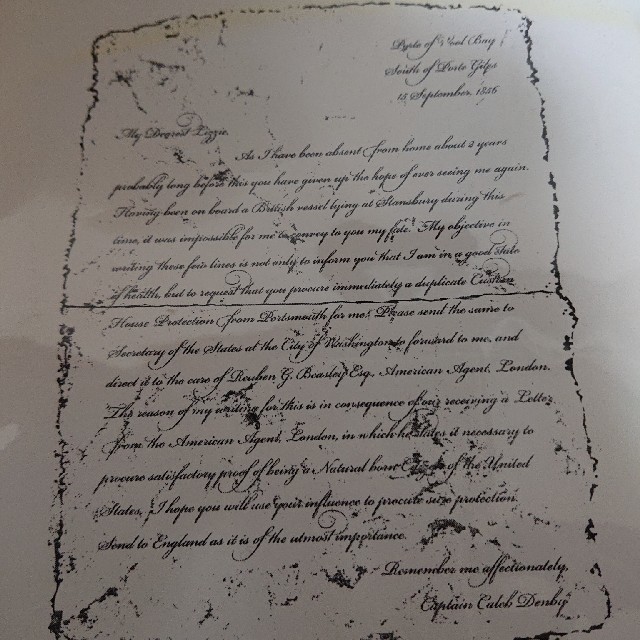 Ports of Wool Bay
South of Porto Giles
15 September, 1856
My Dearest Lizzie,
As I have been absent from home about 2 years
probably long before this you have given up the hope of ever seeing me again.
Having been on board a British vessel lying at Stansbury during this
time, it was impossible for me to convey to you my fate. My objective in
writing these few lines is not only to inform you that I am in a good state
of health, but to request that you procure immediately a duplicate Custom
House Protection from Portsmouth for me. Please send the same to
Secretary of the States at the City of Washington to forward to me, and
direct it to the care of Reuben G. Beasley Esq., American Agent, London.
The reason of my writing for this is in consequence of our receiving a Letter
from the American Agent, London, in which he states it necessary to
procure satisfactory proof of being a Natural born Citizen of the United
States, I hope you will use your influence to procure protection.
Send to England as it is of the utmost importance.
Remember me affectionately,
Captain Caleb Denby